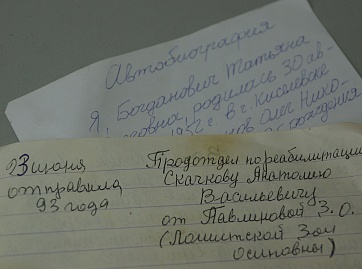 Автобиография
Я Богданович Татьяна
родилась 30 ав-
1952 г. в г. Киселевске
Олег Нико-
рождения
23 июня
отправила
93 года
Продотдел по реабилитации
Скачкову Анатолию
Васильевичу
от Павлиновой З. О.
(Лошитской Зои
Осиповны)